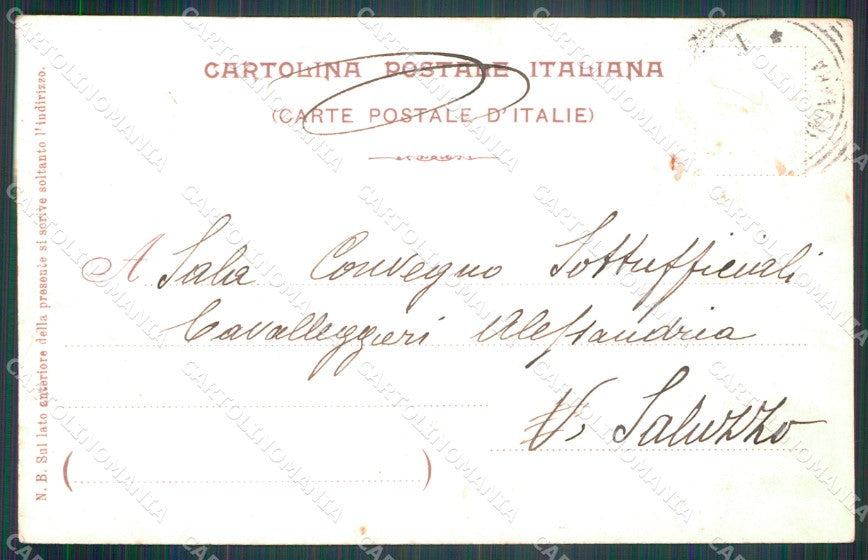 CARTOLINA POSTALE ITALIANA
(CARTE POSTALE D'ITALIE)
A Sala Convegno Sottufficiali
Cavalleggeri Alessandria
Saluzzo
N. B. Sul lato anteriore della presente si scrive soltanto l'indirizzo.
CARTOLINOMANIA